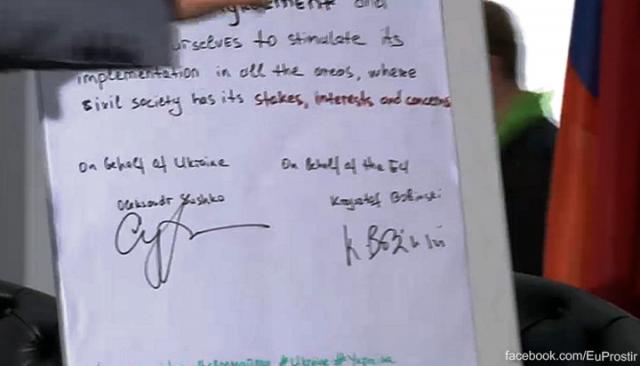 and
ourselves to stimulate its
implementation in all the areas, where
sivil society has its stakes, interests and concerns
On behalf of Ukraine
On behalf of the EU
Oleksandr Sushko
Krzysztof Bobinski
K Bobiński
#Ukraine #Україна
facebook.com/EuProstir